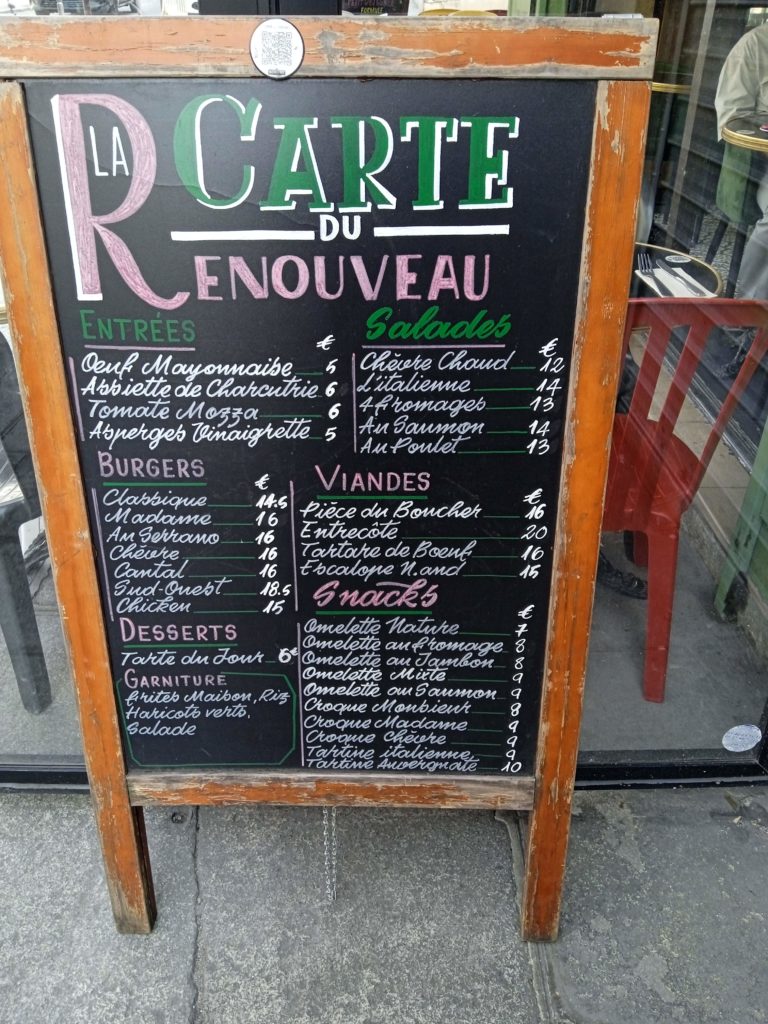 LA CARTE
DU
RENOUVEAU
ENTRÉES
€
Oeuf Mayonnaise 5
Assiette de Charcutrie 6
Tomate Mozza 6
Asperges Vinaigrette 5
Salades
€
Chèvre Chaud 12
L'italienne 14
4 fromages 13
Au Saumon 14
Au Poulet 13
BURGERS
€
Classique 14.5
Madame 16
Au Serrano 16
Chèvre 16
Cantal 16
Sud-Ouest 18.5
Chicken 15
VIANDES
€
Pièce du Boucher 16
Entrecôte 20
Tartare de Boeuf 16
Escalope N.and 15
DESSERTS
Tarte du Jour 6€
GARNITURE
frites Maison, Riz
Haricots verts,
Salade
Snacks
€
Omelette Nature 7
Omelette au fromage 8
Omelette au Jambon 8
Omelette Mixte 9
Omelette au Saumon 9
Croque Monsieur 8
Croque Madame 9
Croque Chèvre 9
Tartine italienne 9
Tartine Auvergnate 10